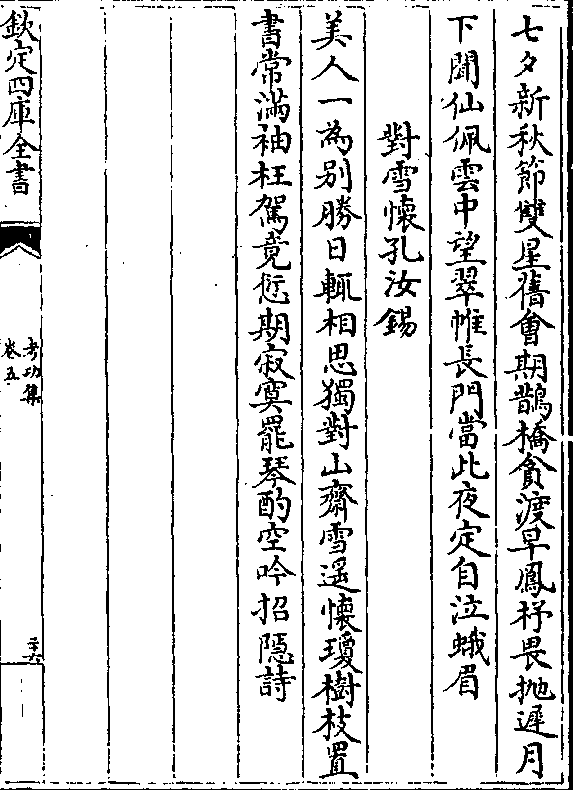 七夕新秋節雙星舊會期鵲橋貪渡早鳳杼畏抛遲月
下聞仙佩雲中望翠帷長門當此夜定自泣蛾眉
對雪懷孔汝錫
美人一為别勝日輒相思獨對山齋雪遥懷瓊樹枝置
書常滿袖枉駕竟愆期寂寞罷琴酌空吟招隱詩
欽定四庫全書
考功集
卷五
二十六